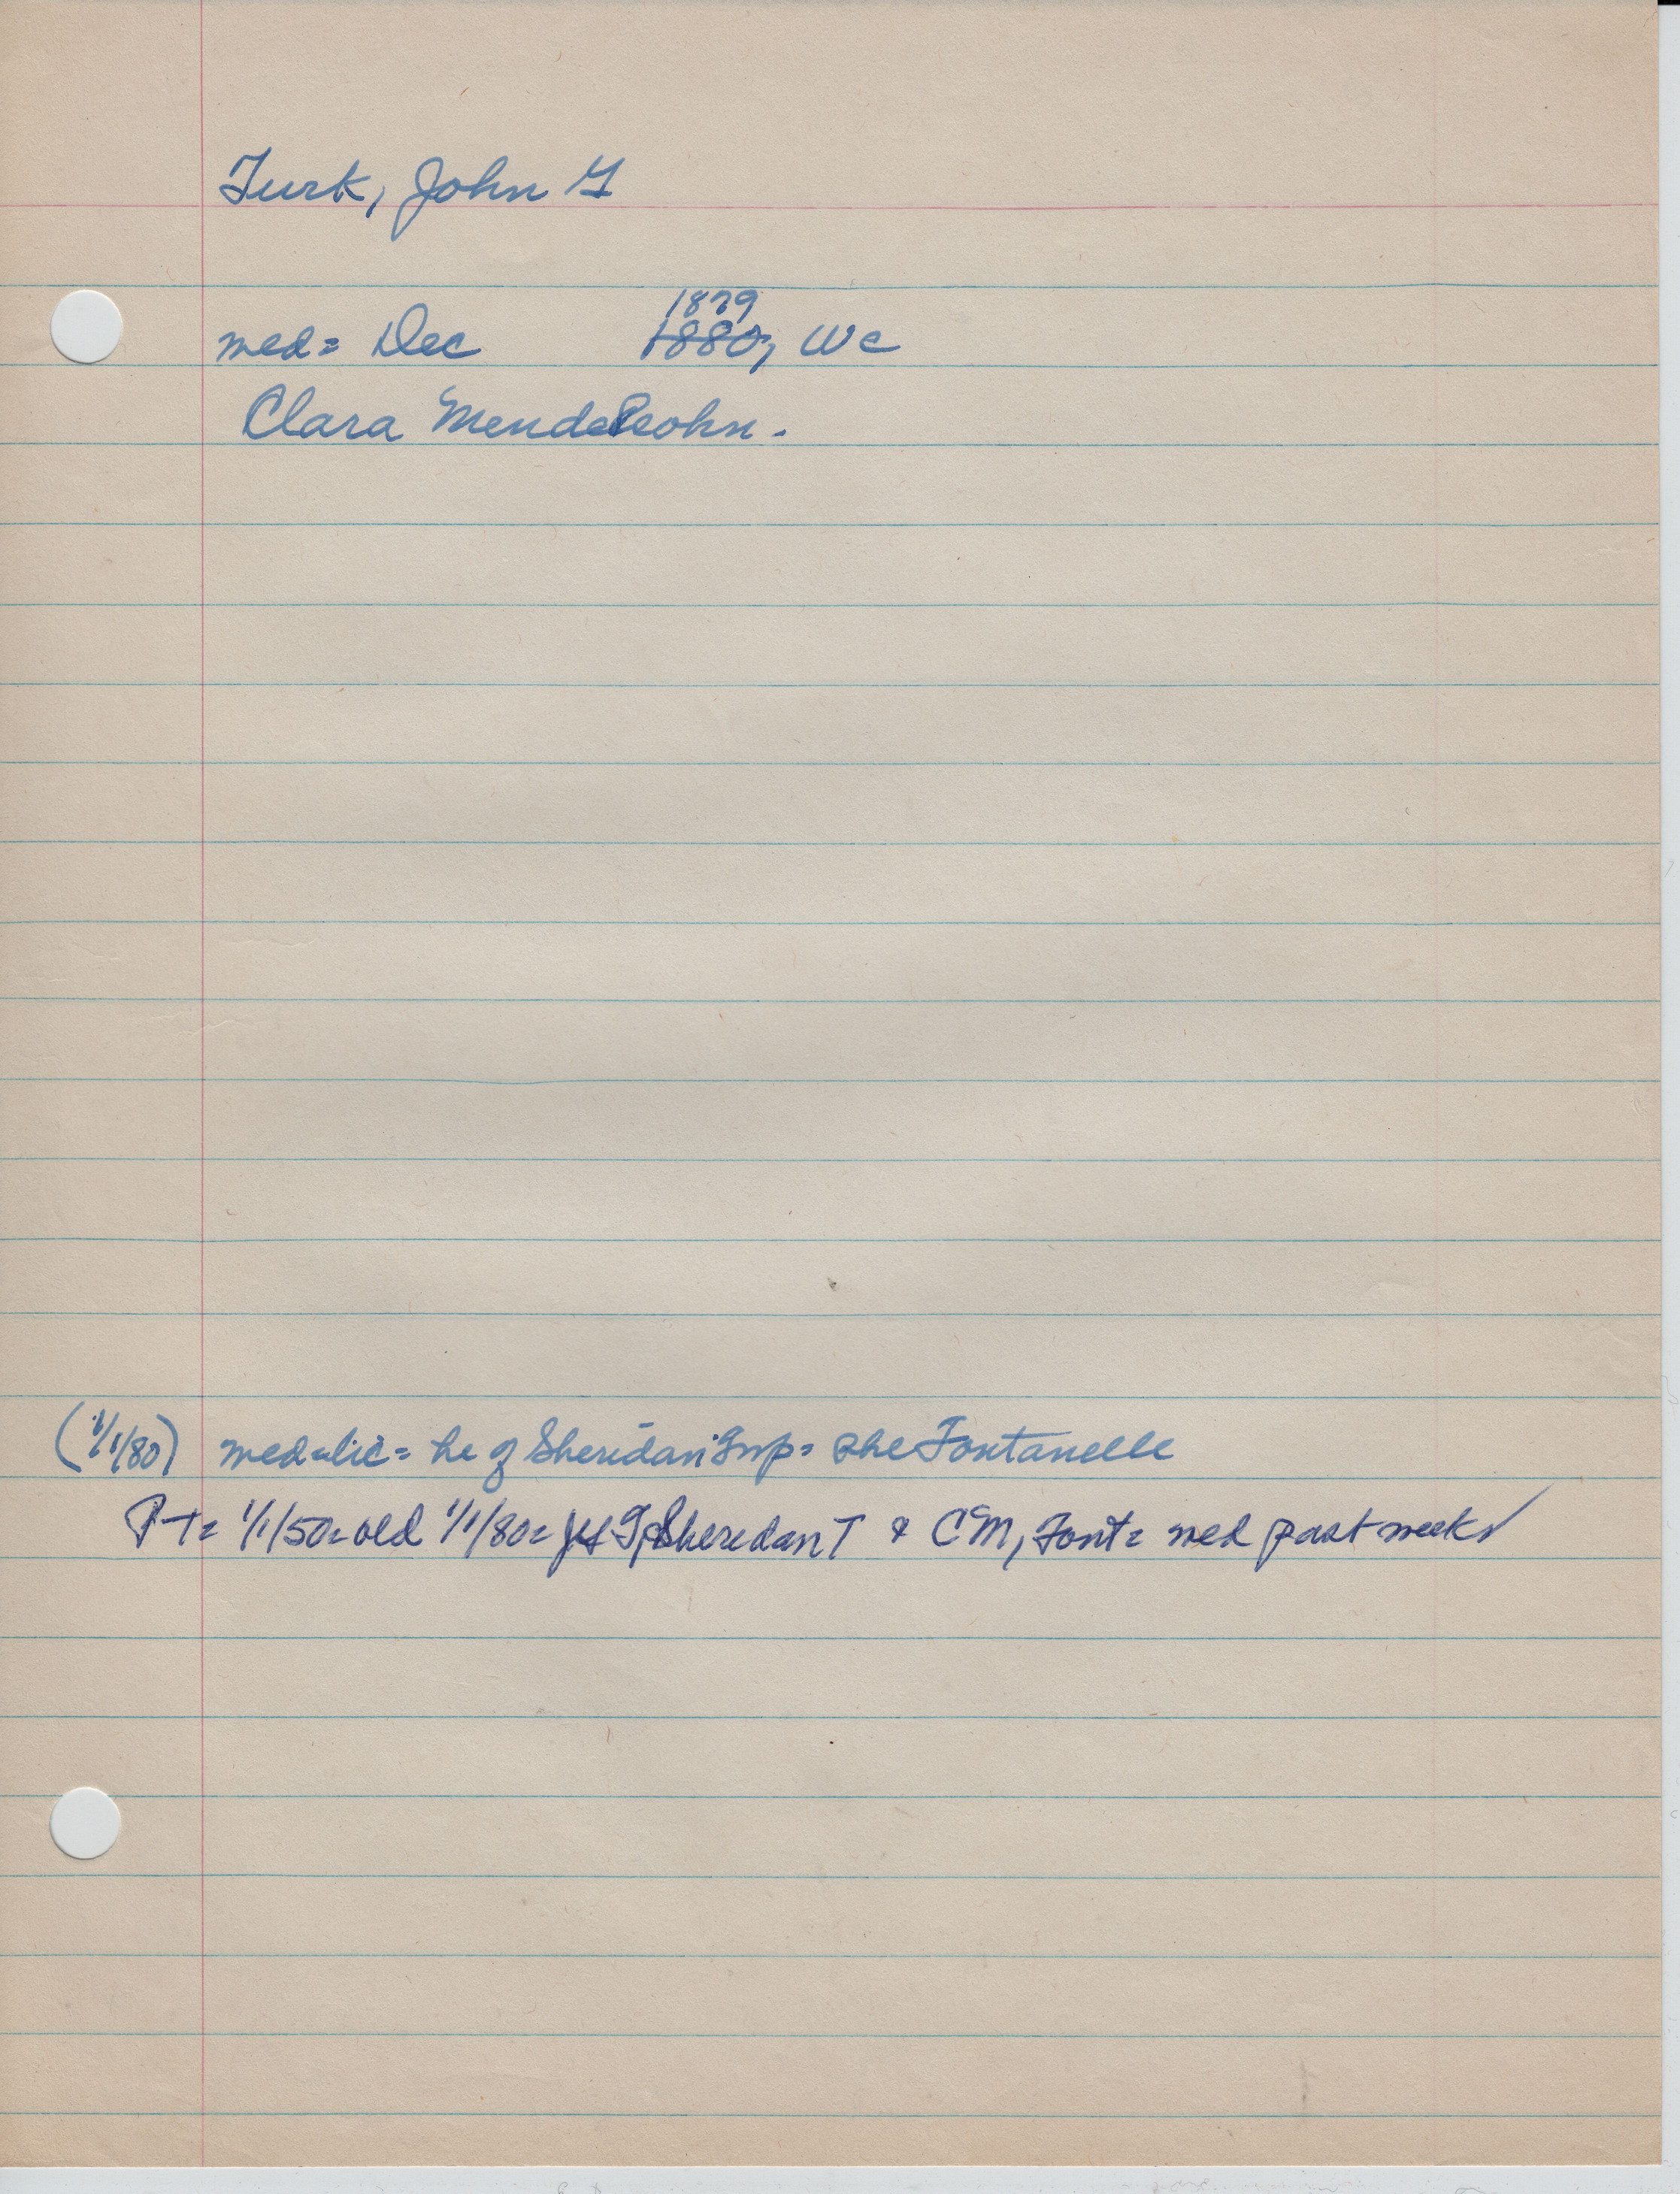 Turk, John G
med = Dec 1879 1880, WC
Clara Mendelsohn.
(1/1/80) med-lic = he of Sheridan Twp = she Fontanelle
PT = 1/1/50 = old 1/1/80 = Sheridan T & CM, Font = wed past week ✓